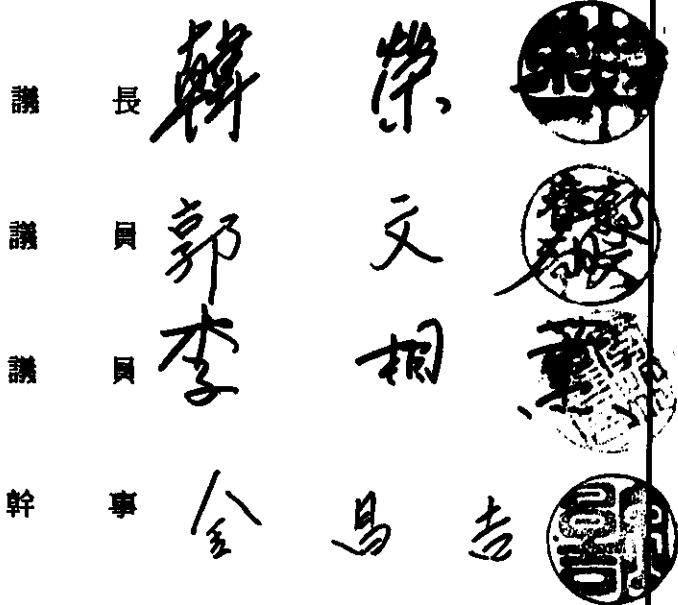 議 長 韓 榮
議 員 郭 文
議 員 李 相 薰
幹 事 金 昌 吉